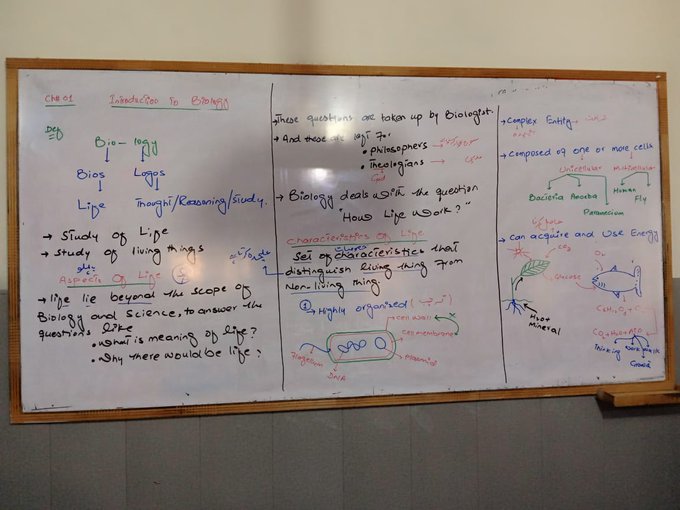 Ch# 01 Introduction to Biology
Def
Bio - logy
Bios Logos
Life Thought/Reasoning/Study.
→ Study of Life
→ Study of living things
Aspects of Life
→ life lie beyond the scope of
Biology and Science, to answer the
questions like
• What is meaning of life?
• Why there would be life?
→ These questions are taken up by Biologist.
→ And these are left for
• Philosophers
• Theologians
God
→ Biology deals with the question
"How Life Work?"
Characteristics of Life
Set of characteristics that
distinguish living thing from
Non living thing.
① → Highly organised (
Cell wall
Cell membrane
Flagellum
Plasmid
DNA
→ Complex Entity
→ Composed of one or more cells
Unicellular Multicellular
Bacteria Amoeba Human
Fly
Paramecium
→ Can acquire and Use Energy
CO₂
O₂
Glucose
H₂O+
Mineral
CO₂+H₂O+ATP
Thinking